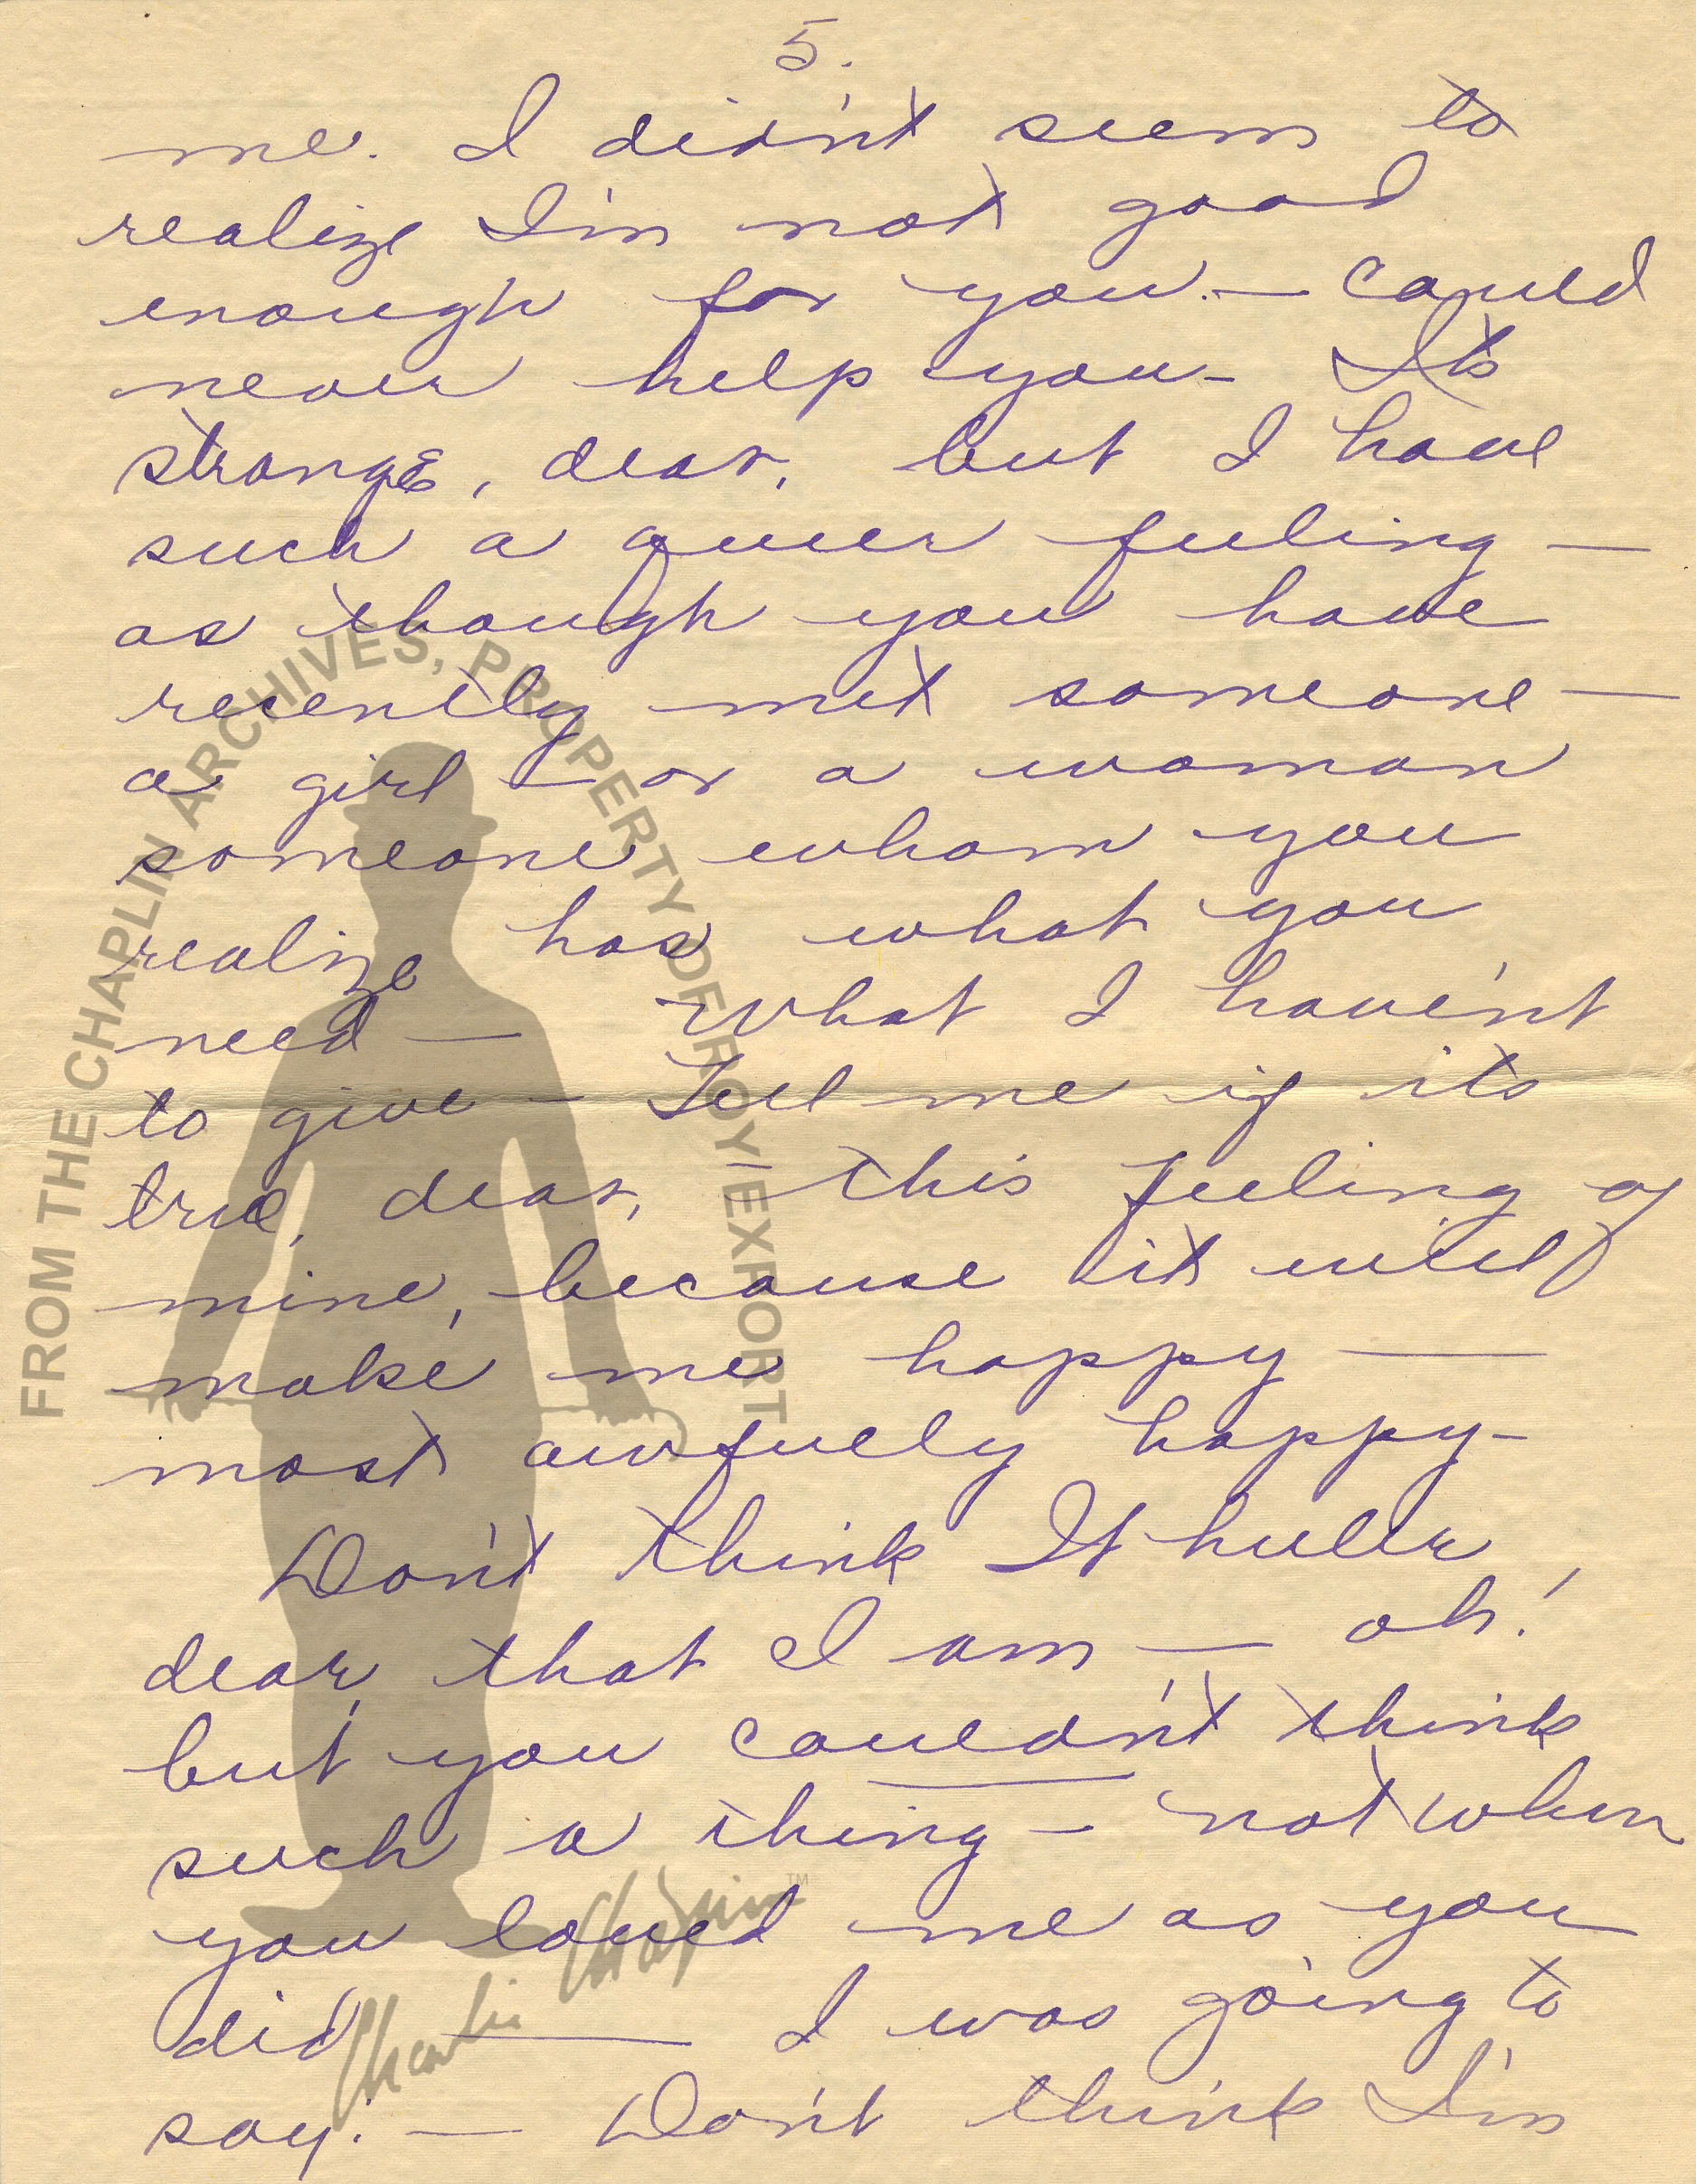 5.
me. I didn't seem to
realize I'm not good
enough for you. — Could
never help you — It's
strange, dear, but I have
such a queer feeling —
as though you have
recently met someone —
a girl — or a woman
someone whom you
realize has what you
need — What I haven't
to give — Tell me if its
true, dear, this feeling of
mine, because it will
make me happy —
most awfully happy —
Don't think
dear, that I am — oh!
but you couldn't think
such a thing — not when
you loved me as you
did — I was going to
say: — Don't think I'm
FROM THE CHAPLIN ARCHIVES, PROPERTY OF ROY EXPORT
Charlie Chaplin™